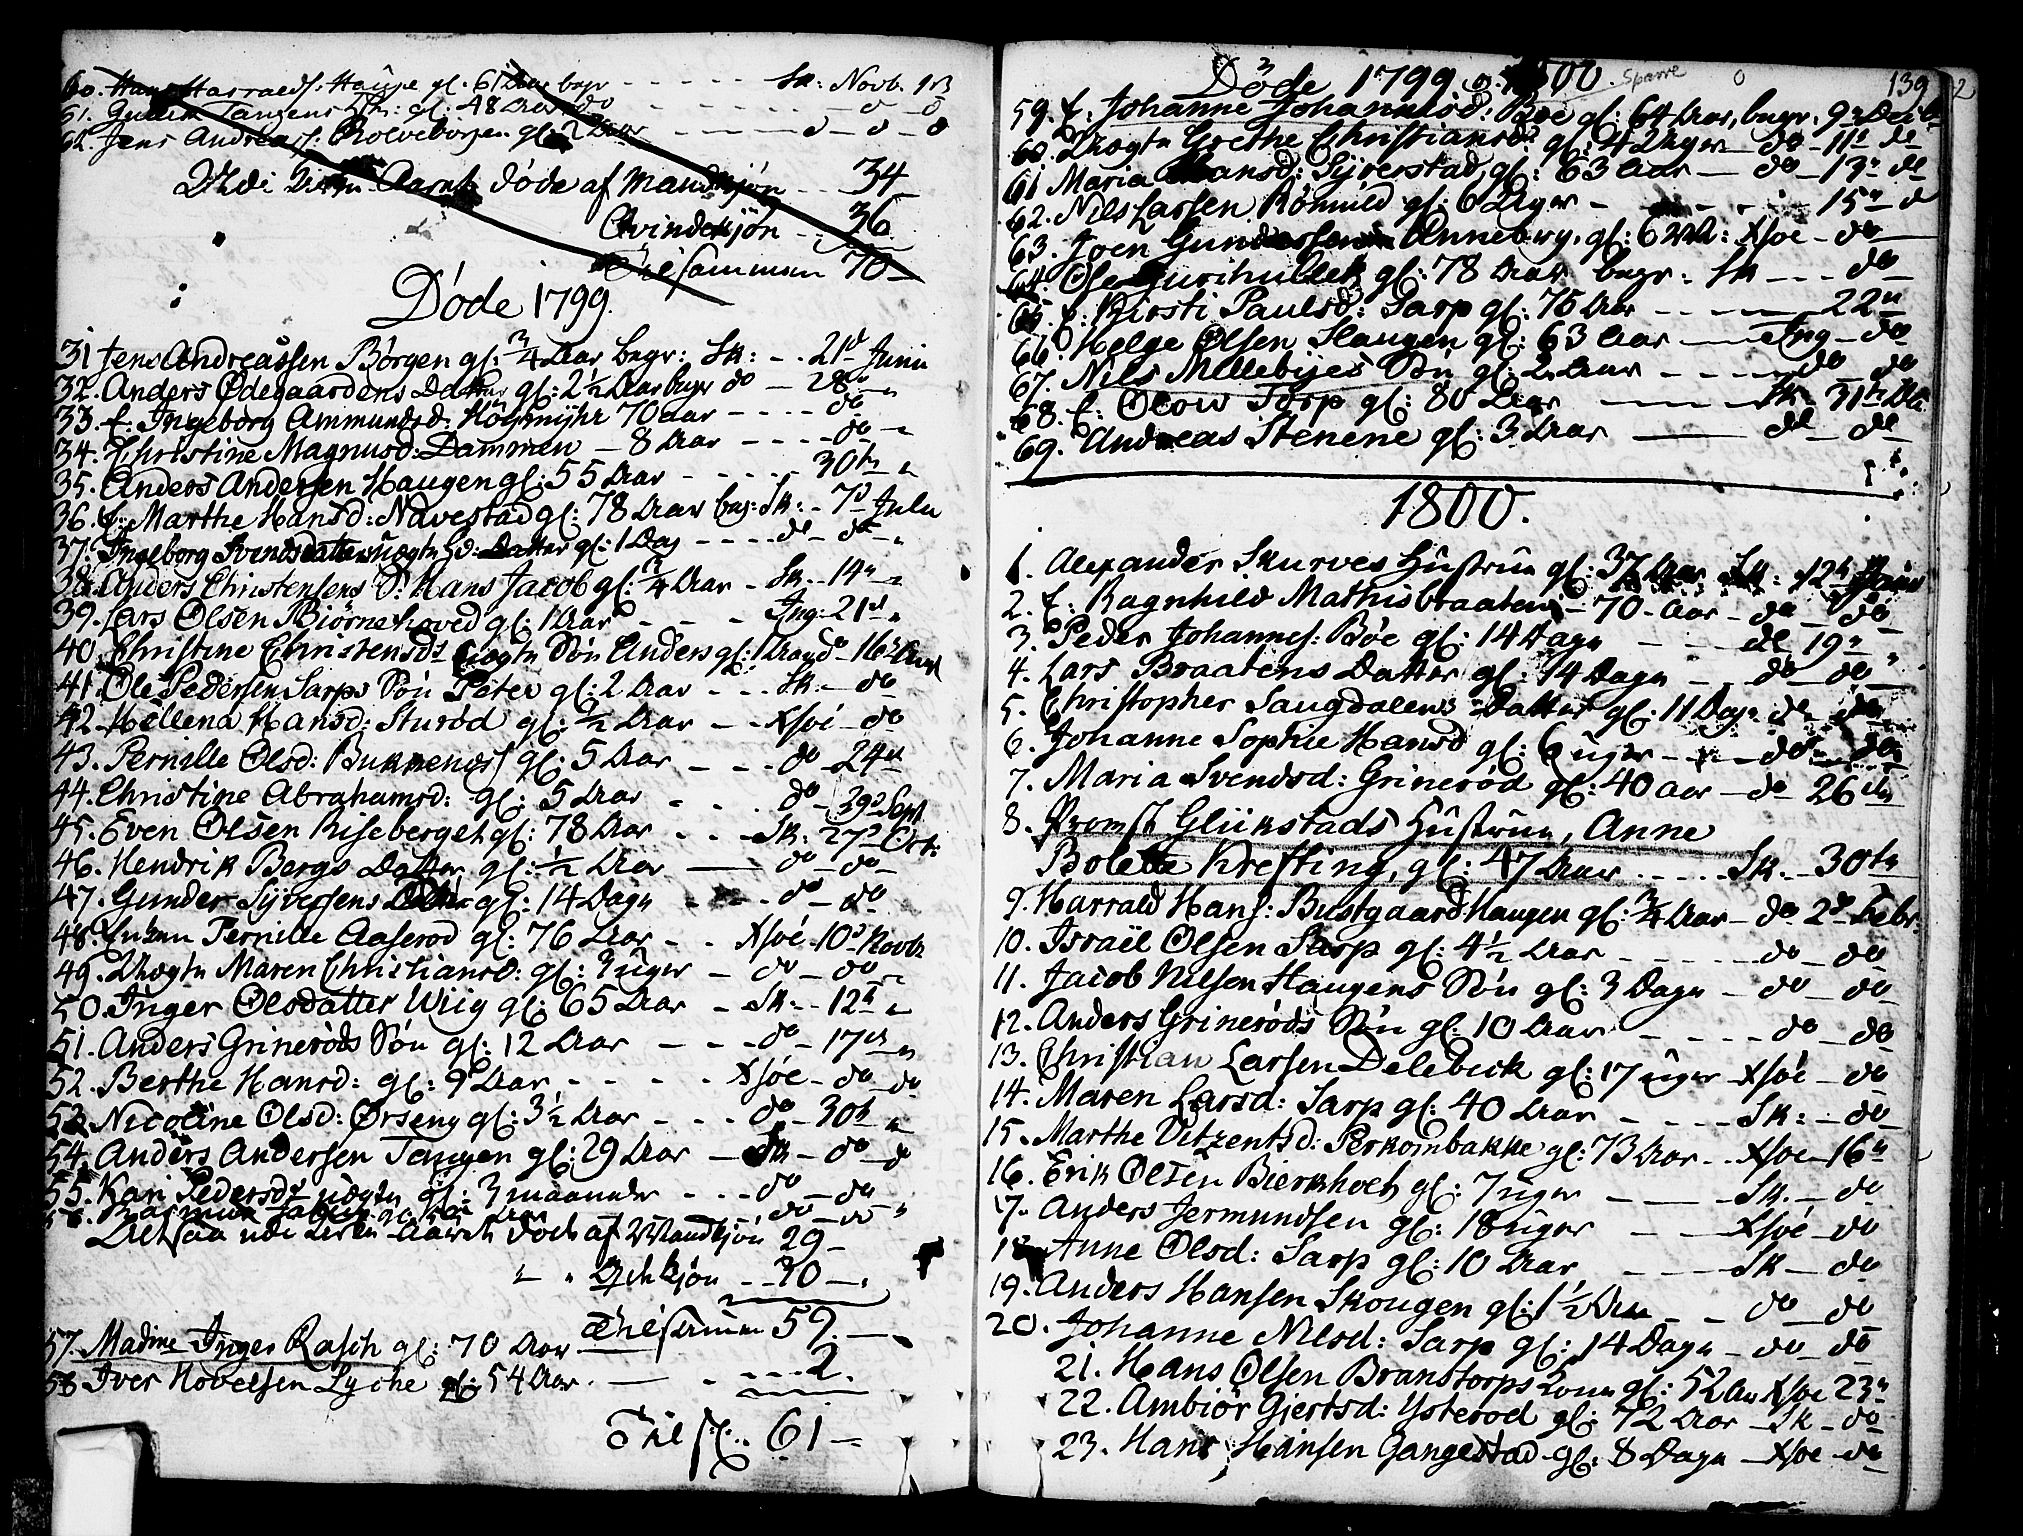 60. Hans Harraeds: Hauge gl: 61 Aar begr - - - Sk: Novb. 9
61. Tangens gl: 48 Aar do - - -
62. Jens Andreass: Rolveborgen gl: 2 Aar - - -
Aaret døde af Mandkjøn - - 34
Qvindekjøn - - 36
Tilsammen 70
Døde 1799.
31 Jens Andreassen Børgen gl: 3/4 Aar begr: Sk: - - 21d Junii
32. Anders Ødegaardens Datter gl: 2 1/2 Aar begr do - 28de "
33. E: Ingeborg Ammundsd: Høgmyhr 70 aar - - - - do "
34. Christine Magnusd: Dammen - 8 Aar - - - - do "
35. Anders Andersen Haugen gl: 55 Aar - - - - 30te "
36. E: Marthe Hansd: Navestad gl: 78 Aar beg: Sk: - 7d Julii
37. Ingeborg Svendsdatters uægte Datter gl: 1 Dag - - - - do - do "
38. Anders Christensens S: Hans Jacob gl: 3/4 Aar - Sk. - 14n "
39. Lars Olsen Biørnehoved gl: 1 Aar - - - Ing: 21d "
40. Christine Christensds uægte Søn Anders gl: 1 do - 16 Aug
41. Ole Pedersen Sarps Søn Peter gl: 2 Aar - - - Sk. - do
42. Hellena Hansd: Sturød gl: 1/2 Aar - - Xsøe - do
43. Pernille Olsd: gl: 5 Aar - - - do - 24d
44. Christine Abrahamsd: gl: 5 Aar - - - do - Sept
45. Even Olsen Riseberget gl: 78 Aar - - - Sk: 27d Octr
46. Hendrik Bergs Datter gl: 1/2 Aar - do - do
47. Gunder Syversens gl: 14 Dage - - do - do
48. Enken Pernille Aaserød gl: 76 Aar - - Xsøe - 10d Novbr
49. Uægte Maren Christiansd: gl: 3 uger - do - do "
50. Inger Olsdatter Wiig gl: 65 Aar - Sk: - 12te "
51. Anders Grinerøds Søn gl: 12 Aar - - - do - 17de "
52. Berthe Hansd: gl: 9 Aar - - - - Xsøe - do - do
53. Nicoline Olsd: Ørseng gl: 3 1/2 Aar - - - do - 30te "
54. Anders Andersen Tangen gl: 29 Aar - Sk - do - do
55. Kari Pedersd: uægte gl: 3 maaneder - - - do - do "
56. Rasmus gl: Aar do - do "
Altsaa udi dette Aar døde af Mandkjøn 29 -
" " Qvkjøn - - 30 - "
Tilsammen 59. -
57. Madme Inger Rasch gl: 70 Aar
58 Iver Hovelsen Lyche gl: 54 Aar. - - - - 2.
Til s: 61 -
Døde 1799 og 1800 Sparre 139
59. E: Johanne Johannesd: Bøe gl: 64 Aar, begr. 9de Decb
60. Uægte Grethe Christiansd: gl: 4 Uger - do - 11te do
61 Maria Hansd: Syverstad, gl: 63 Aar - do - 13n do
62. Nils Larsen Rømuld gl: 6 Uger - - - 15n do
63. Joen Gundersen Anneberg, gl: 6 Xsøe - do
64. Ole Gurihullet gl: 78 Aar begr: Sk - - - do
65. E: Kirsti Paulsd: Sarp gl: 75 Aar - - - 22n
66. Helge Olsen Haugen gl: 63 Aar - Ing - do
67. Nils Mellebyes Søn gl: 2 Aar - - - do do
68. E: Olow Torp gl: 80 Aar - Sk: 31te do
69. Andreas Stenene gl: 3 Aar - do - do
1800.
1. Alexander Skurves Hustrue gl: 37 Aar Sk: 12te
2. E: Ragnhild Mathisbraaten - 70 - Aar - do - do
3. Peder Johanness: Bøe gl: 14 Dage - - do 19n "
4. Lars Braatens Datter gl: 14 Dage - do - do "
5. Christopher Saugdalens Datter gl: 11 Dage do
6. Johanne Sophie Hansd gl: 6 uger - - - do - do
7. Maria Svendsd: Grinerød gl: 40 aar - do 26
8. Promst Glükstads Hustrue, Anne
Bolette Krefting, gl: 47 Aar - - - - Sk. 30te
9. Harrald Hans: Bustgaard Haugen gl: 3/4 Aar - do 2d Febr.
10. Israël Olsen Sarp gl: 4 1/2 Aar - - - - do - do
11. Jacob Nilsen Haugens Søn gl: 3 Dage - do - do
12. Anders Grinerøds Søn gl: 10 Aar - - - - do - do
13. Christian Larsen Delebeck gl: 17 uger - Xsøe - do
14. Maren Larsd: Sarp gl: 40 Aar - - - Sk: - do
15. Marthe Vitzentsd: Perkombakke gl: 73 Aar - - Xsøe - 16n
16. Erik Olsen Bierkholt gl: 7 uger - - Sk. - do
17. Anders Jermundsen gl: 18 uger - - Xsøe - do
18 Anne Olsd: Sarp gl: 10 Aar - - - Sk - do
19. Anders Hansen Skougen gl: 1 1/2 Aar - - do - do
20. Johanne Nilsd: Sarp gl: 14 Dage - do - do
21. Hans Olsen Branstorps gl: 52 Aar Xsøe 23n
22. Ambiør Gjertsd: Ysterød gl: 72 Aar - Sk - do
23. Hans Hansen Gangestad gl: 8 Dage - Xsøe - do